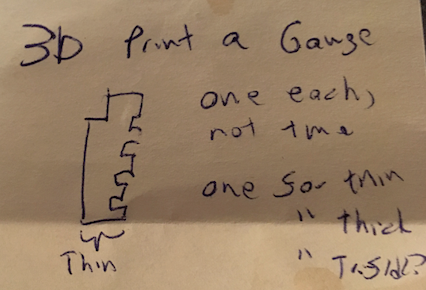 3D Print a Gauge
one each,
not time
one for thin
" thick
" Inside?
Thin